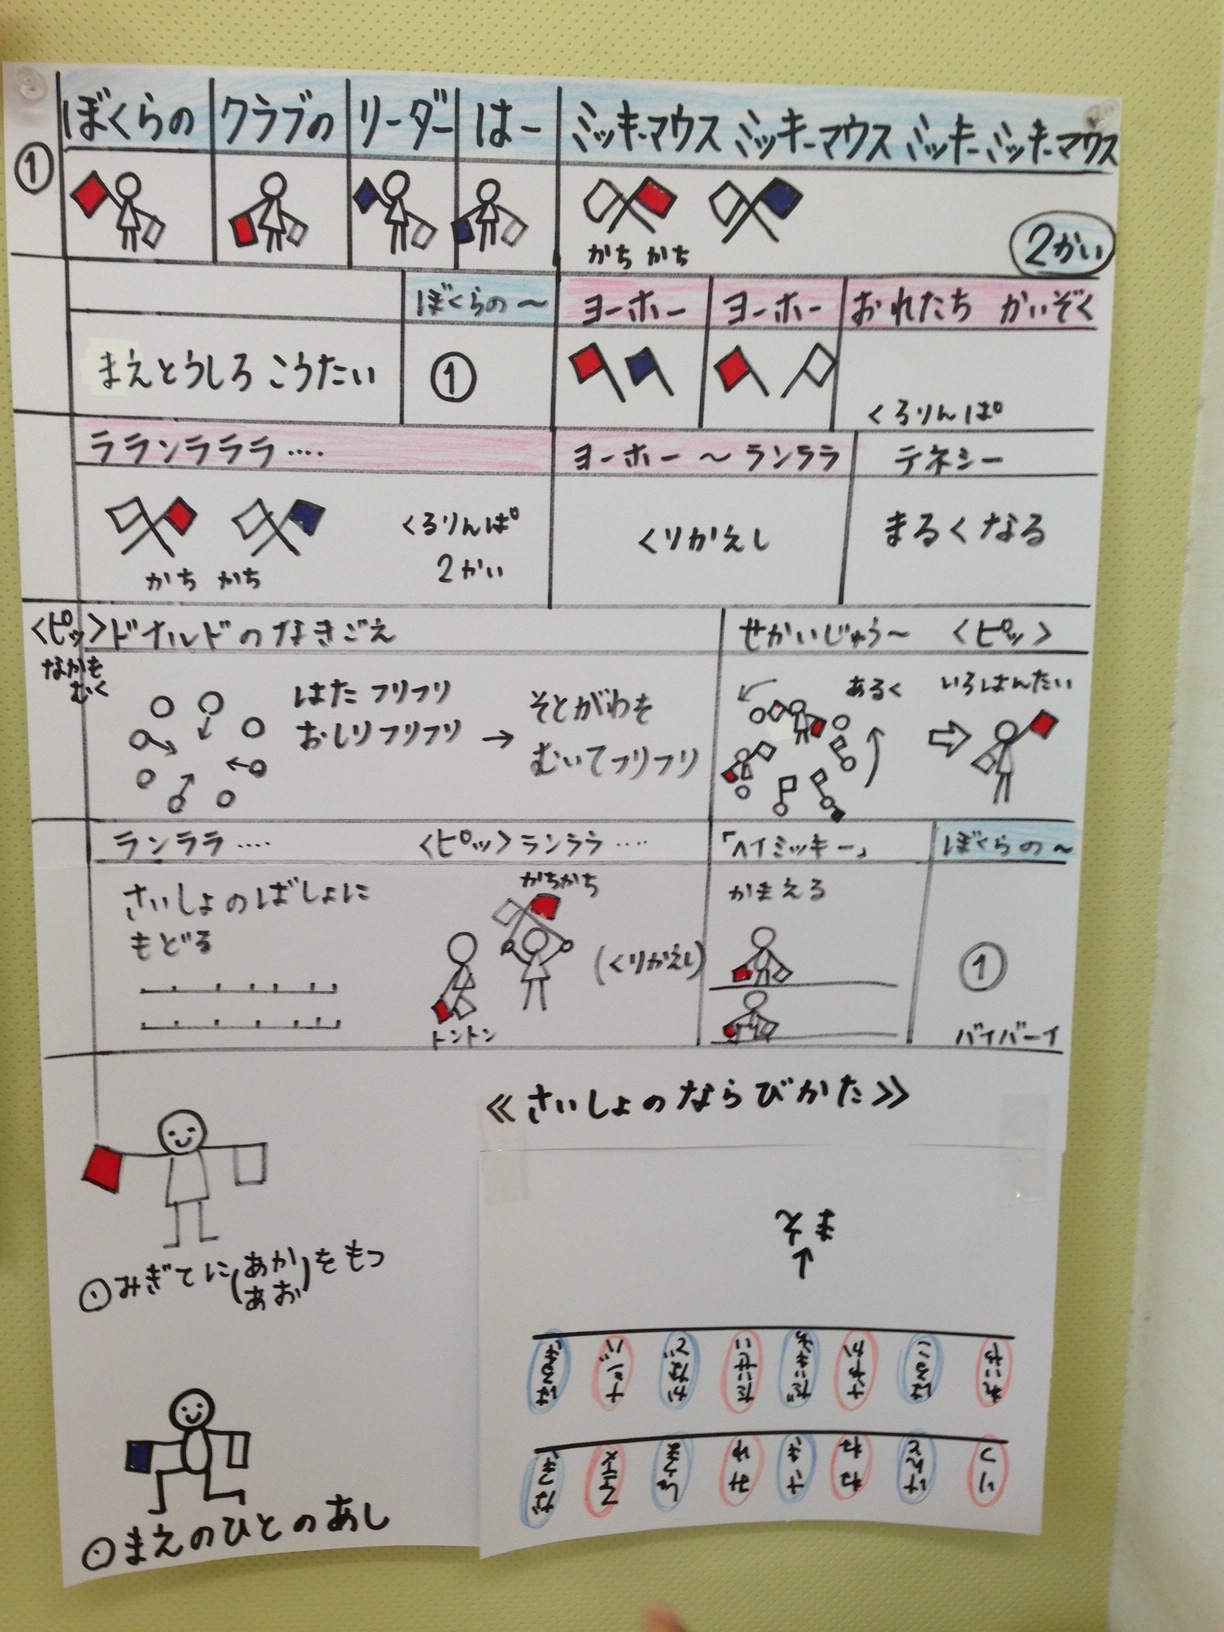 ぼくらの クラブの リーダー はー ミッキーマウス ミッキーマウス ミッキーミッキーマウス
①
かち かち
2かい
ぼくらの〜 ヨーホー ヨーホー おれたち かいぞく
まえとうしろ こうたい
①
くろりんぱ
ラランラララ…‥ ヨーホー〜ランララ テネシー
かち かち
くるりんぱ
2かい
くりかえし
まるくなる
<ピッ>ドナルドのなきごえ
なかも
むく
はた フリフリ
おしりフリフリ → そとがわを
むいてフリフリ
せかいじゅう〜 <ピッ>
あるく
いろはんたい
ランララ…‥ <ピッ>ランララ…‥ 「ヘイミッキー」 ぼくらの〜
さいしょのばしょに
もどる
かちかち
トントン
(くりかえし)
かまえる
①
バイバーイ
≪さいしょのならびかた≫
まえ
↑
みぎてに(あか
あお)をもつ
まえのひとのあし